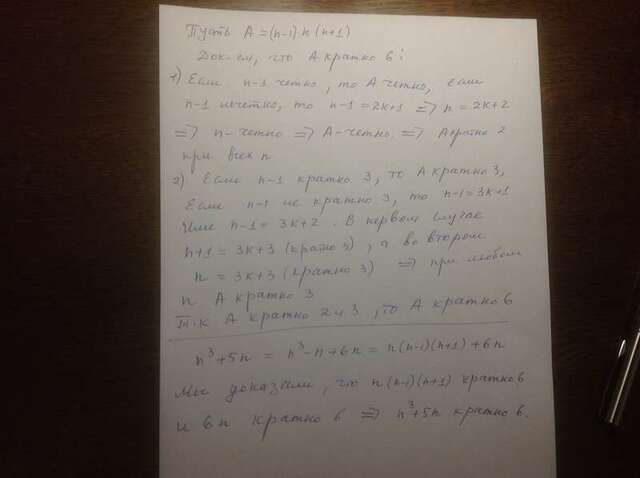 Пусть A = (n-1) n (n+1)
Док-ем, что A кратно 6:
1) Если n-1 четно, то A четно, если
n-1 нечетно, то n-1 = 2k+1 => n = 2k+2
=> n - четно => A - четно. => A кратно 2
при всех n
2) Если n-1 кратно 3, то A кратно 3,
Если n-1 не кратно 3, то n-1 = 3k+1
или n-1 = 3k+2. В первом случае
n+1 = 3k+3 (кратно 3), а во втором
n = 3k+3 (кратно 3) => при любом
n A кратно 3
Т.к A кратно 2 и 3, то A кратно 6
n³+5n = n³-n+6n = n(n-1)(n+1)+6n
Мы доказали, что n(n-1)(n+1) кратно 6
и 6n кратно 6 => n³+5n кратно 6.